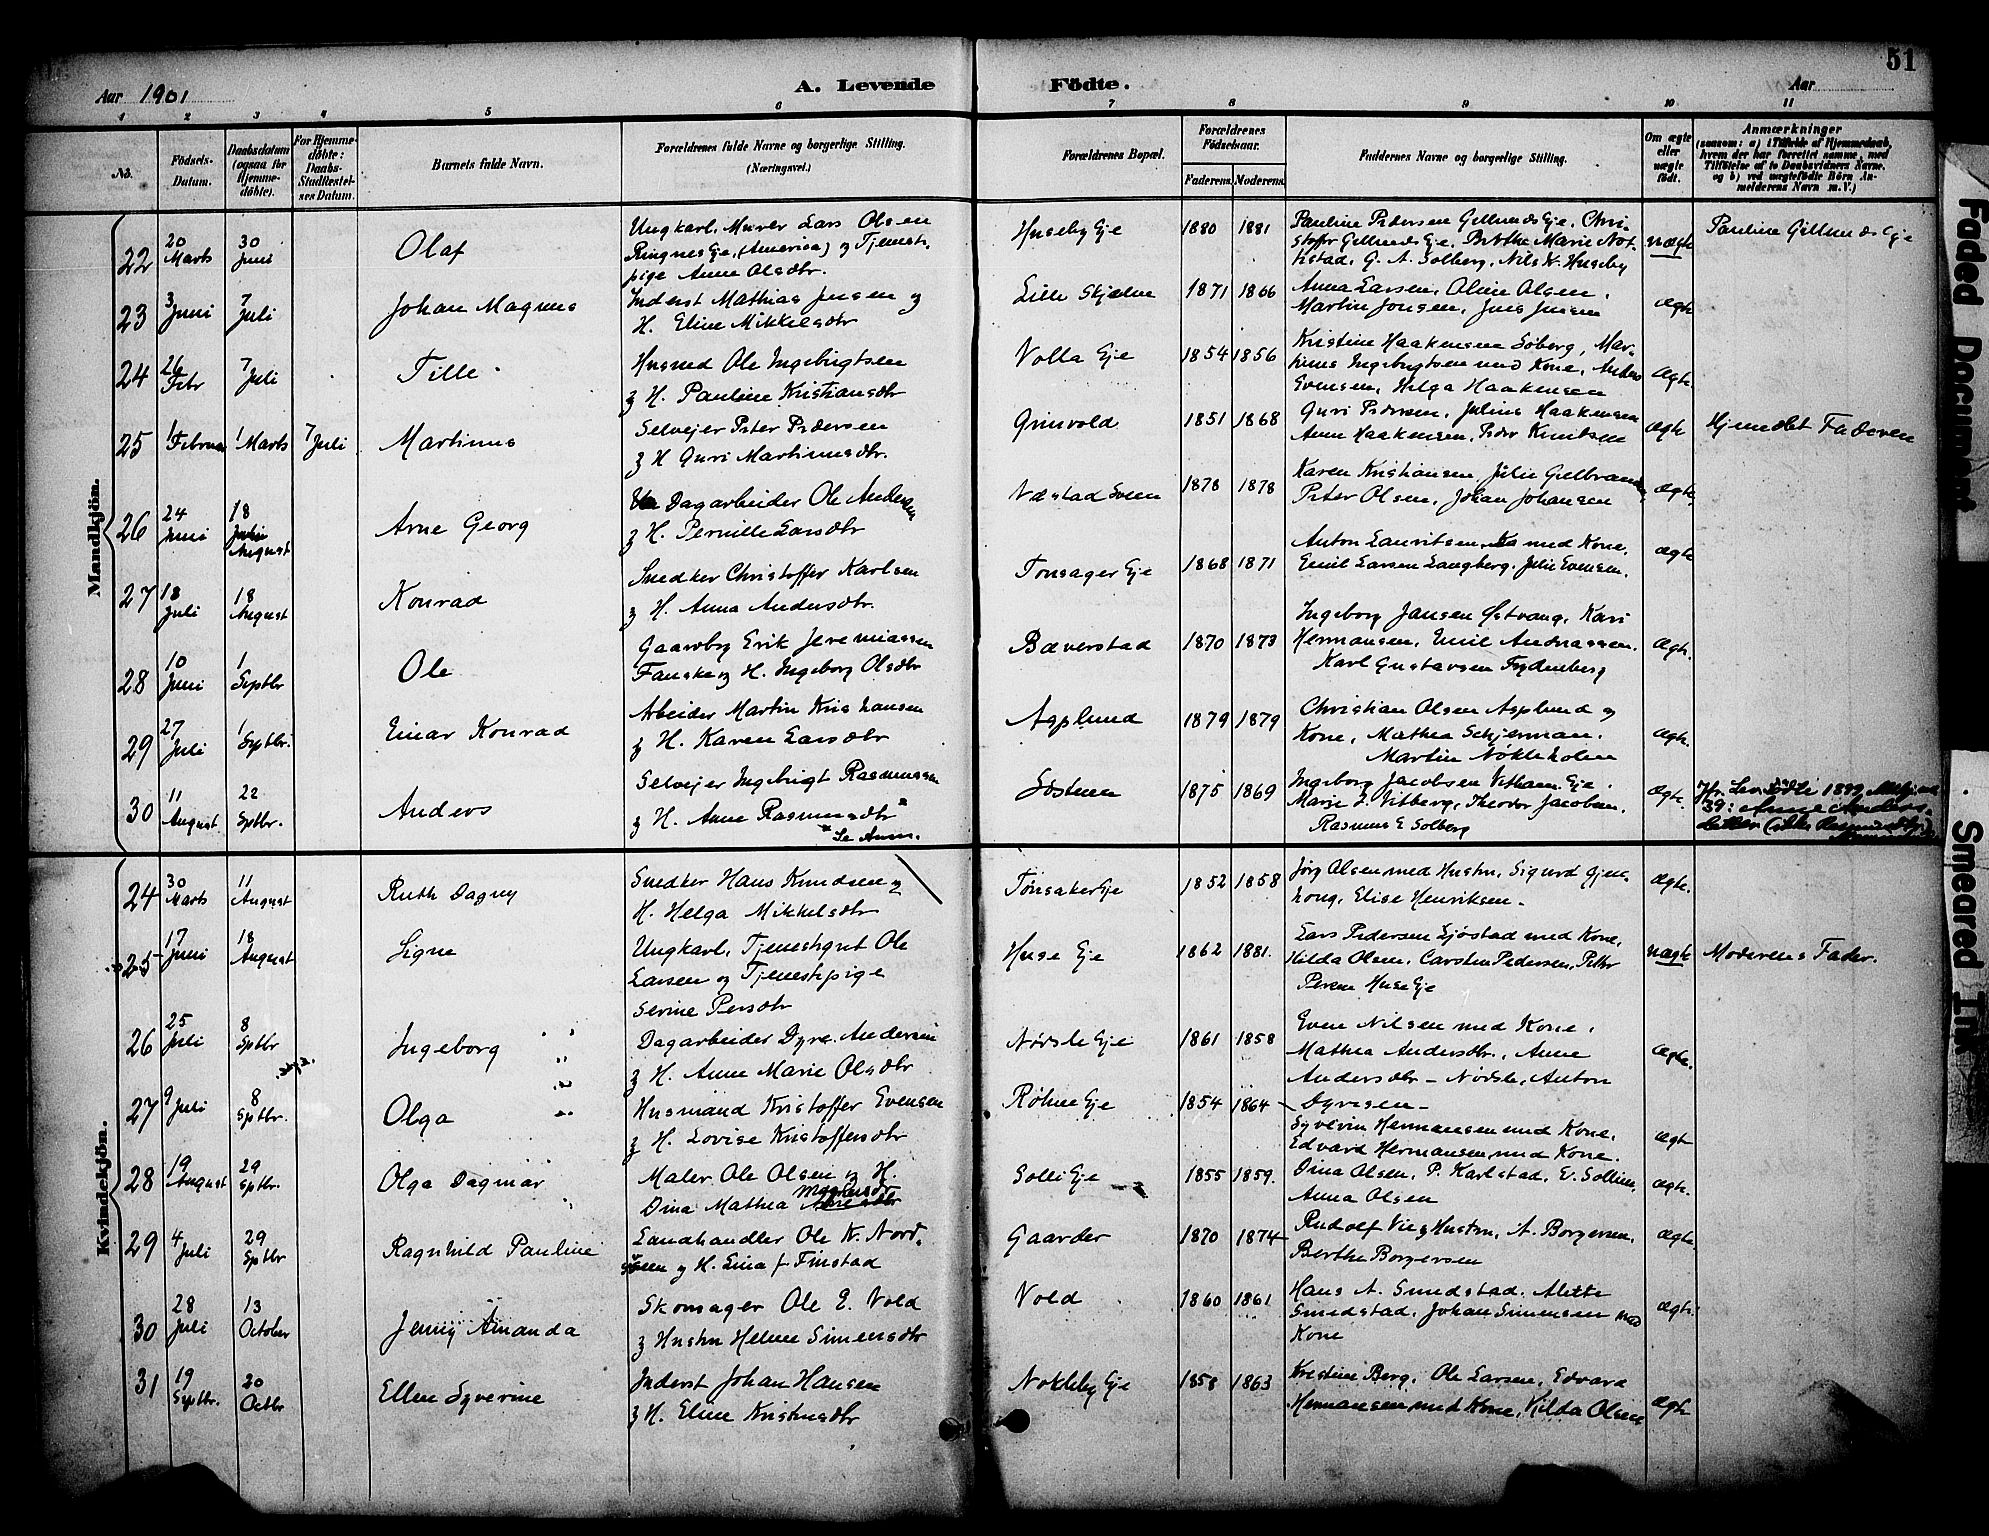 51
Aar 1901
A. Levende Födte.
Aar
1 2 3 4 5 6 7 8 9 10 11
No.
Födsels-Datum.
Daabsdatum (ogsaa for Hjemmedöbte).
For Hjemmedöbte: Daabs-Stadfæstelses Datum.
Barnets fulde Navn.
Forældrenes fulde Navne og borgerlige Stilling. (Næringsvei.)
Forældrenes Bopæl.
Forældrenes Födselsaar.
Faderens. Moderens.
Faddernes Navne og borgerlige Stilling.
Om ægte eller uægte födt.
Anmærkninger
(saasom: a) i Tilfælde af Hjemmedaab, hvem der har forrettet samme, med Tilföielse af to Daabsvidners Navne, og b) ved uægtefödte Börn Anmelderens Navn m. V.)
Mandkjön.
22 20 Marts 30 Juni Olaf
Ungkarl, Murer Lars Olsen
Ringnes Eje, (America) og Tjenestpige Anne Olsdtr.
Huseby Eje 1880 1881
Pauline Pedersen Gillunds Eje, Christofer Gillunds Eje, Berthe Marie
G. A. Solberg, Nils K. Huseby
uægte
Pauline Gillunds Eje
23 3 Juni 7 Juli Johan Magnus
Inderst Mathias Jensen og
H. Eline Mikkelsdtr
Lille Skjelm 1871 1866
Anna Larsen, Oline Olsen,
Martin Jonsen, Jens Jensen
ægte
24 26 Febr 7 Juli Tille
Husmd Ole Ingebrigtsen
og H. Pauline Kristiansdtr
Volla Eje 1854 1856
Kristine Haakensen Söberg, Martinus Ingebrigtsen med Kone, Anders
Evensen, Helga Haakensen
ægte.
25 1 Februar 1 Marts 7 Juli Martinus
Selvejer Peter Pedersen
og H Guri Martinusdtr.
Grinvold 1851 1868
Guri Pedersen, Julius Haakensen
Anne Haakensen, Peder Knutsen
ægte
Hjemdbt Faderen
26 24 Juni 18 August Arne Georg
Dagarbeider Ole Andersen
og H. Pernille Larsdtr
Næstad Eje 1878 1878
Karen Kristiansen, Julie Gulbrandsen,
Peter Olsen, Johan Johansen
ægte.
27 18 Juli 18 August Konrad
Snedker Christoffer Karlsen
og H. Anna Andersdtr.
Tonsager Eje 1868 1871
Anton Lauritsen med Kone,
Emil Larsen Langberg, Julie Evensen.
ægte
28 10 Juni 1 Septbr Ole
Gaardbg Erik Jeremiassen
Fanske og H. Ingeborg Olsdtr
Bæverstad 1870 1873
Ingeborg Jansen Østvang, Kari
Hermansen, Emil Andreassen.
Karl Gustavsen Frydenberg
ægte.
29 27 Juli 1 Septbr. Einar Konrad
Arbeider Martin Kristiansen
og H. Karen Larsdtr
Asplund 1879 1879
Christian Olsen Asplund og
Kone, Mathea Schjerman.
Martin Nökleholm
ægte.
30 11 August 22 Septbr. Anders
Selvejer Ingebrigt Rasmussen
og H. Anne Rasmusdtr *
* Se Anm.
1875 1869
Ingeborg Jacobsen Eje.
Marie L. Vitberg, Theodor Jacobsen.
Rasmus E Solberg
ægte.
1899
39: Anne Anders-
datter (ikke Rasmusdtr)
Kvindekjön.
24 30 Marts 11 August Ruth Dagny
Snedker Hans Knudsen og
H. Helga Mikkelsdtr
Tönsaker Eje 1852 1858
Jörg Olsen med Hustru, Sigurd
Elise Henriksen.
ægte.
25 17 Juni 18 August Signe
Ungkarl, Tjenestgut Ole
Larsen og Tjenestepige
Serine Persdtr
Huse Eje 1862 1881.
Lars Pedersen Sjöstad med Kone,
Hilda Olsen, Carsten Pedersen, Petter
Persen Huse Eje
uægte
Moderens Fader.
26 25 Juli 8 Septbr Ingeborg
Dagarbeider Dyre Andersen
og H. Anne Marie Olsdtr
Nordsle Eje 1861 1858
Even Nilsen med Kone.
Mathea Andersdtr., Anne
Andersdtr - Nordsle, Anton
Dyresen -
ægte.
27 9 Juli 8 Septbr. Olga
Husmand Kristoffer Evensen
og H. Lovise Kristoffersdtr
Röhne Eje 1854 1864
Syverin Hermansen med Kone.
Edvard Hermansen med Kone.
ægte
28 19 August 29 Septbr. Olga Dagmar
Maler. Ole Olsen og H.
Dina Mathea
Solli Eje 1855 1859.
Dina Olsen, P. Karlstad, E. Sollien,
Anna Olsen
ægte.
29 4 Juli 29 Septbr Ragnhild Pauline
Landhandler Ole K. Nord-
og H. Lina f Finstad
Gaarder 1870 1874
Rudolf Vie og Hustru, A. Borgersen,
Berthe Borgersen
ægte.
30 28 Juli 13 October Jenny Amanda
Skomager Ole E. Vold
og Hustru Helene Simensdtr
Vold 1860 1861
Hans A. Smedstad, Alette
Smedstad, Johan Simensen med
Kone
ægte.
31 19 Septbr. 20 Octbr Ellen Syverine
Inderst Johan Hansen
og H. Eline Kristensdtr
Nokleby Eje 1858 1863
Kristine Berg, Ole Larsen, Edvard
Hermansen med Kone, Hilda Olsen
ægte
Faded Document.
Smeared Ink